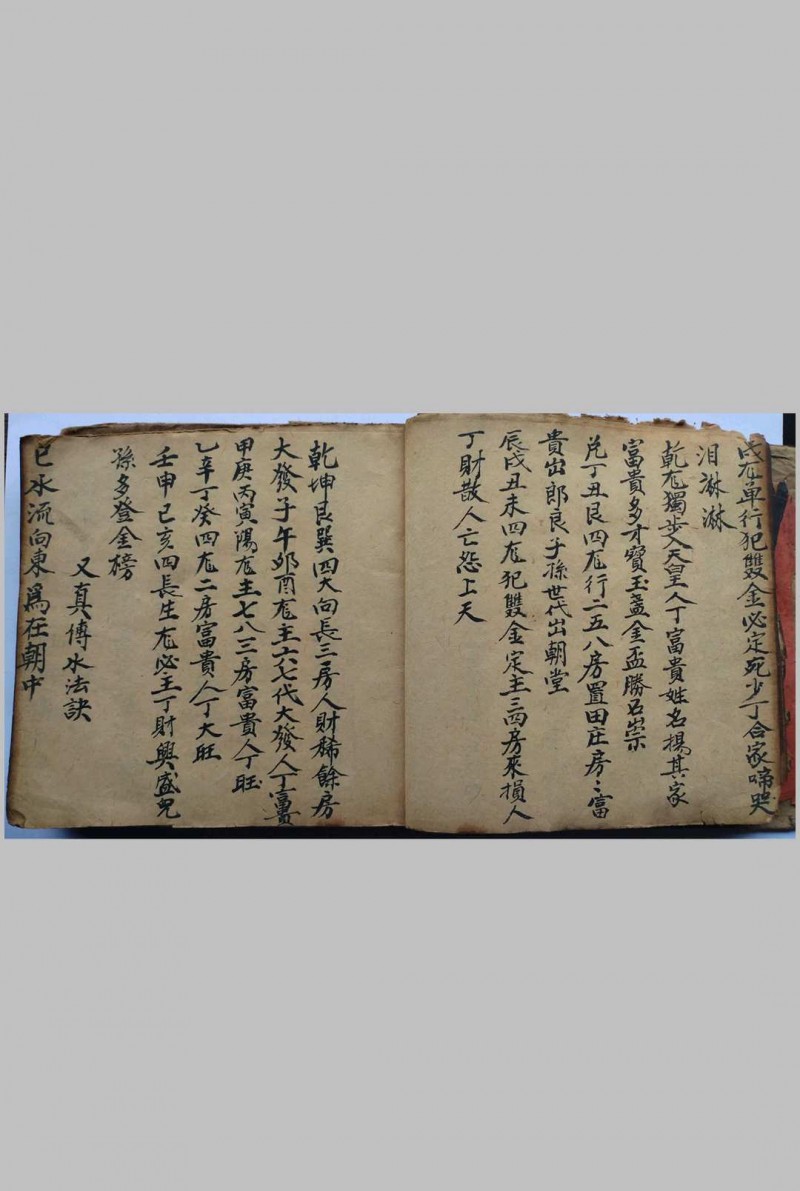 戌龙单行犯雙金必定死少丁合家啼哭
泪淋淋
乾龙獨步入天皇人丁富貴姓名揚其家
富貴多才寳玉盞金盃勝石崇
兑丁丑艮四龙行二五八房置田庄房〻富
貴出郎良子孫世代出朝堂
辰戌丑未四龙犯雙金定主三四房來損人
丁財散人亡怨上天
乾坤艮巽四大向長三房人財稀餘房
大發子午夘酉龙主六七代大發人丁富貴
甲庚丙寅陽龙主七八三房富貴人丁旺
乙辛丁癸四龙二房富貴人丁大旺
壬申巳亥四長生龙必主丁財興盛兒
孫多登金榜
又真傳水法訣
巳水流向東爲在朝中